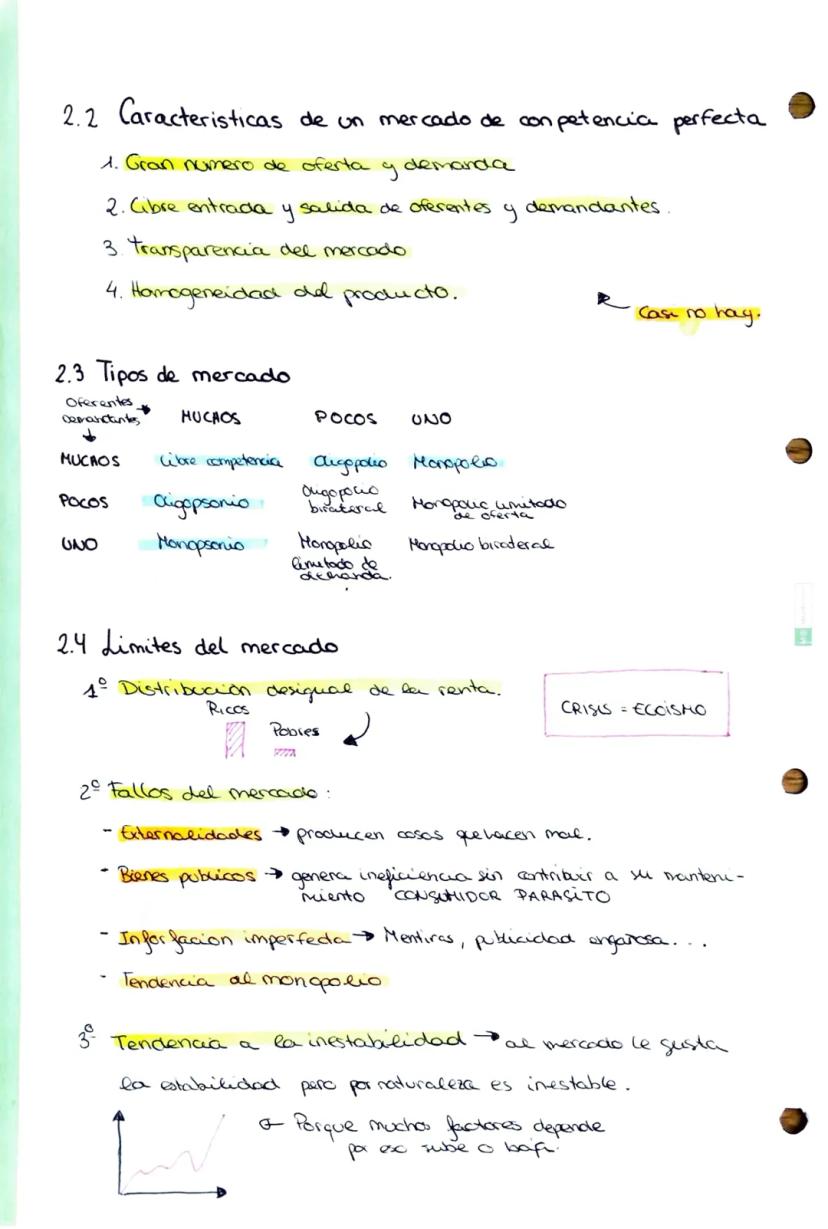 2.2 Caracteristicas de un mercado de conpetencia perfecta
1. Gran numero de oferta y demanda
2. Libre entrada y salida de oferentes y demandantes.
3. Transparencia del mercado
4. Homogeneidad del producto.
Casi no hay.
2.3 Tipos de mercado
Oferentes
Demandantes
MUCHOS POCOS UNO
MUCHOS Libre competencia Oligopolio Monopolio
POCOS Oligopsonio Oligopolio bilateral Monopolio limitado de oferta
UNO Monopsonio Monopolio limitado de demanda. Monopolio bilateral
2.4 Limites del mercado
1º Distribución desigual de la renta.
Ricos
Pobres
CRISIS = EGOISMO
2º Fallos del mercado:
- Externalidades → producen cosas que hacen mal.
- Bienes publicos → genera ineficiencia sin contribuir a su manteni-
miento CONSUMIDOR PARASITO
- Inforfacion imperfecta → Mentiras, publicidad engañosa...
- Tendencia al monopolio
3º Tendencia a la inestabilidad → al mercado le gusta
la estabilidad pero por naturaleza es inestable.
Porque muchos factores depende
por eso sube o baja.